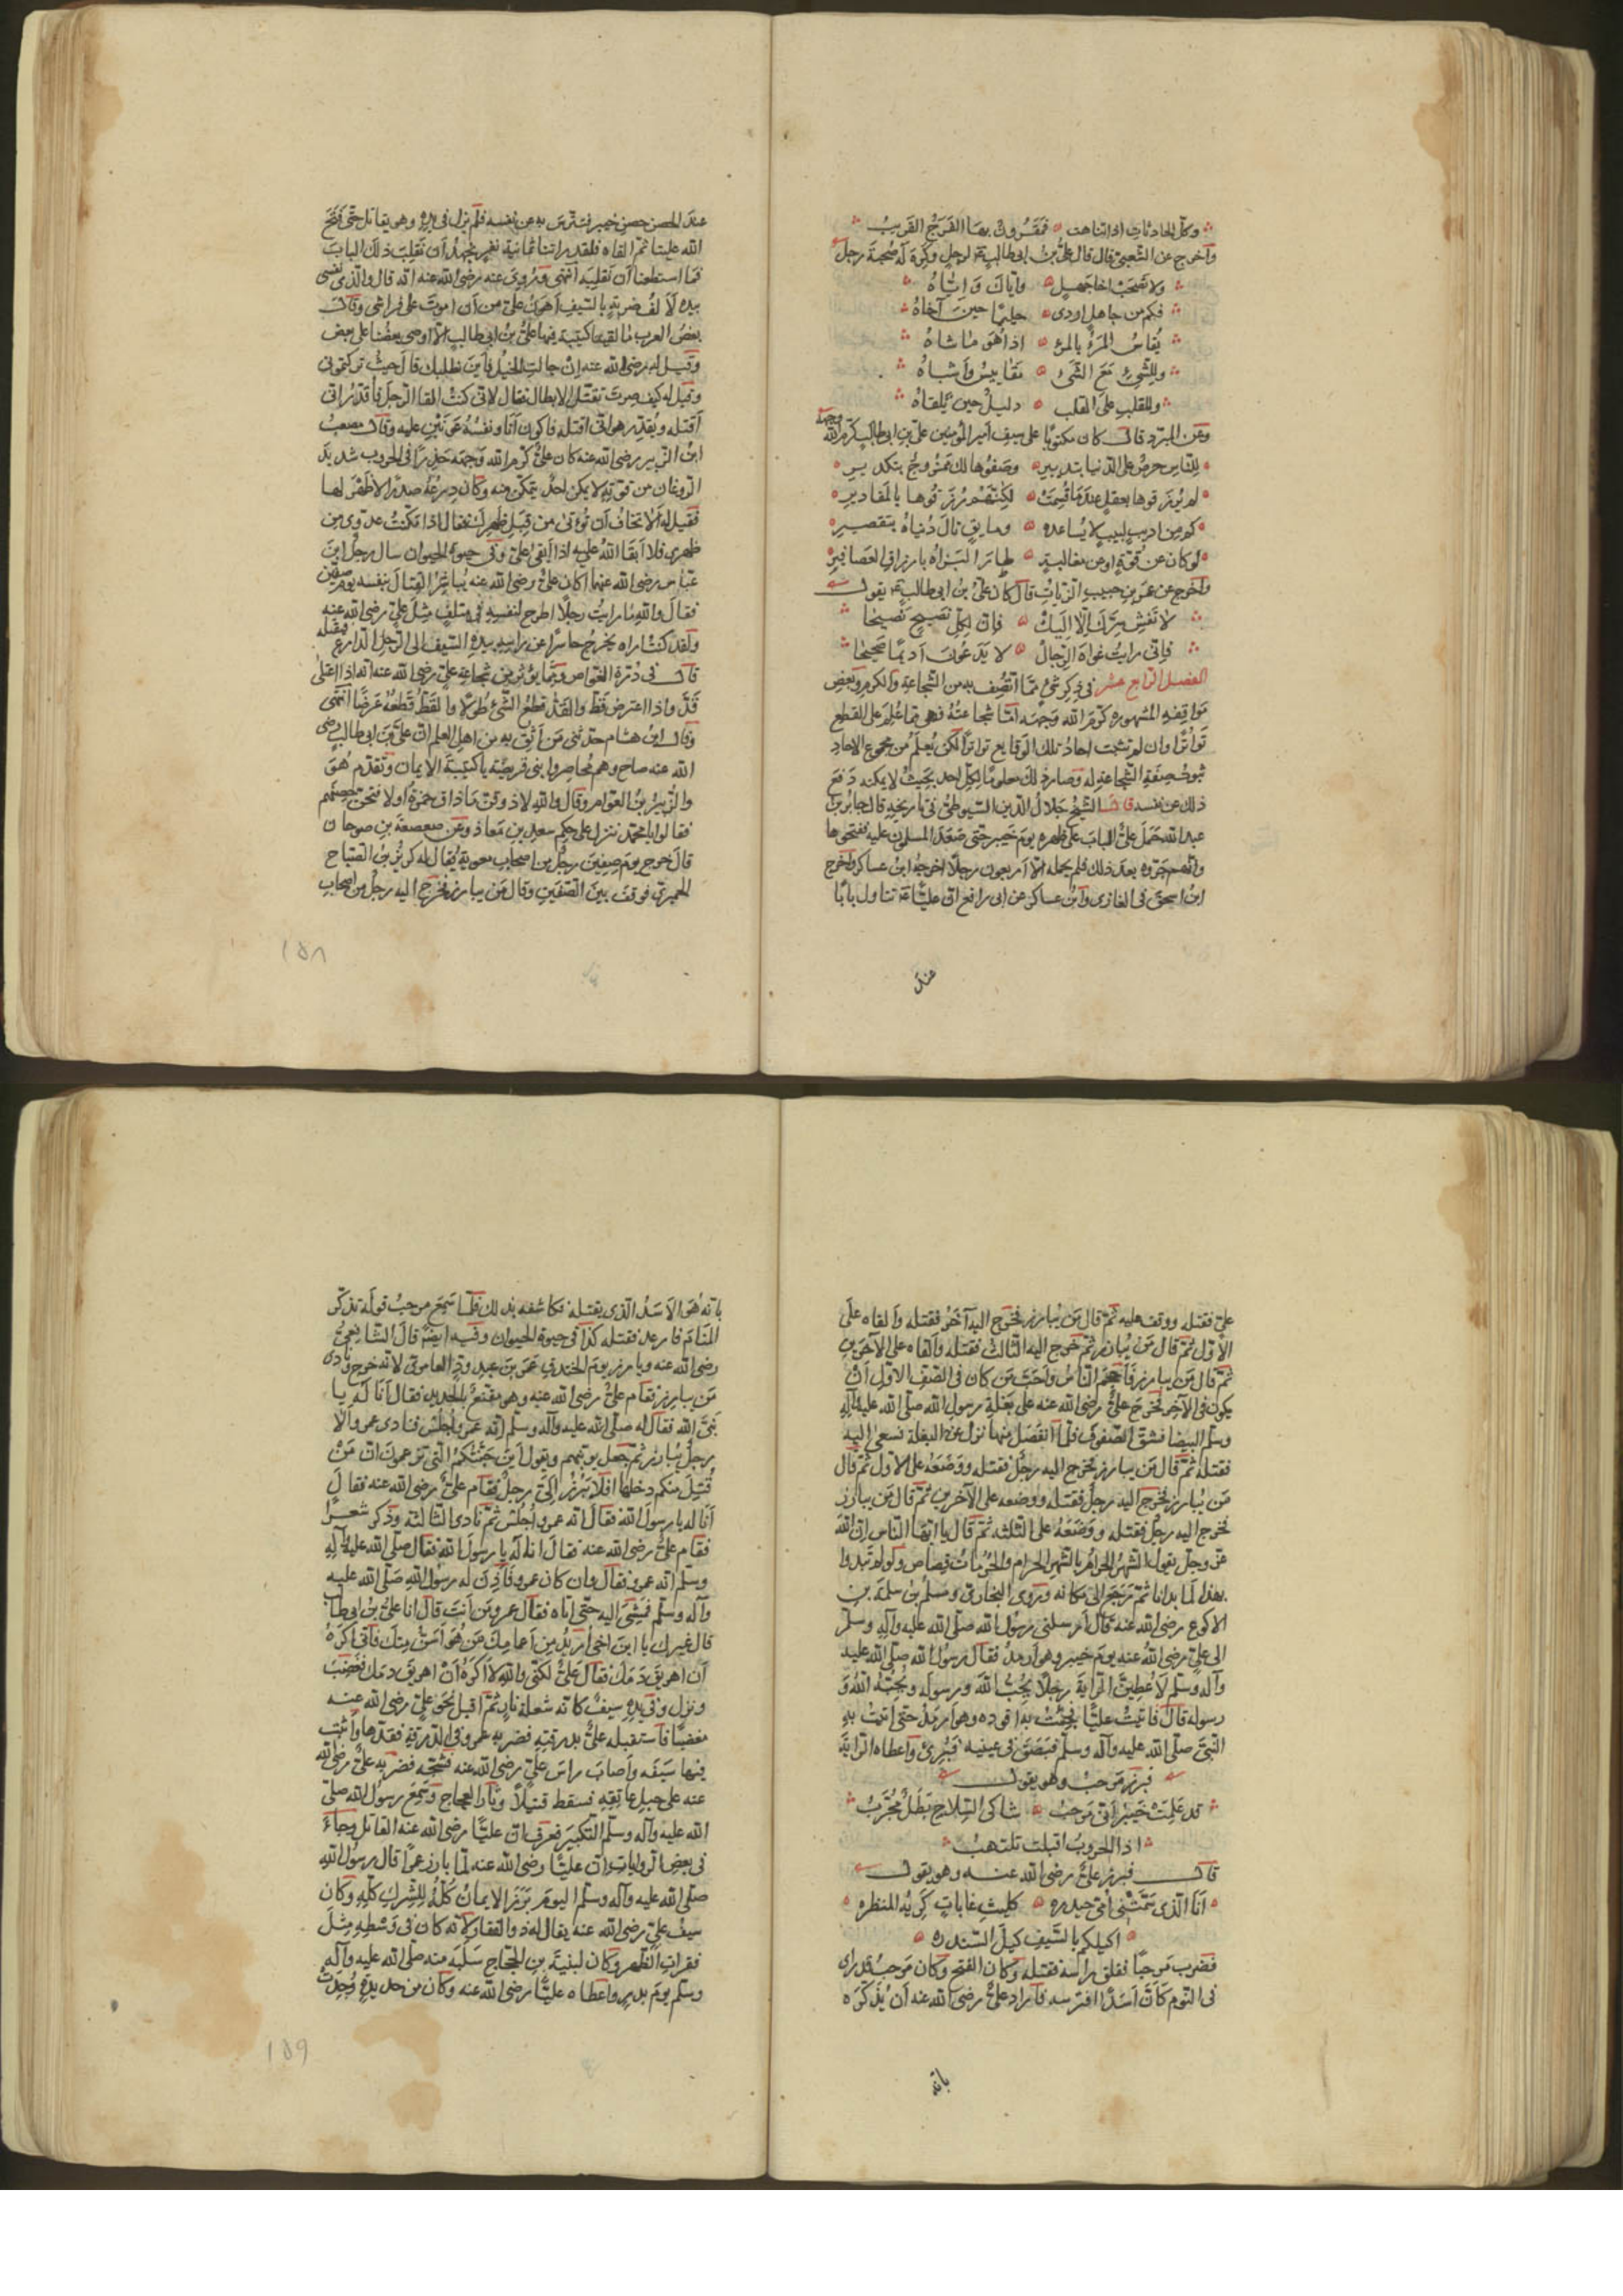 وكل الحادثات اذا تناهت فمقرون بها الفرج القريب
واخرج عن الشعبي قال قال علي بن ابي طالب لرجل وكره له صحبة رجل
ولا تصحب اخا جهل واياك واياه
فكم من جاهل اودى حليما حين آخاه
يقاس المرء بالمرء اذا هو ما شاه
وللشيء مع الشيء مقاييس واشباه
وللقلب على القلب دليل حين يلقاه
وعن المبرد قال كان مكتوبا على سيف امير المؤمنين علي بن ابي طالب كرم الله وجهه
للناس حرص على الدنيا بتدبير وصفوها لك ممزوج بتكدير
لم يرزقوها بعقل عندما قسمت لكنهم رزقوها بالمقادير
كم من اديب لبيب لا يساعده ومايق نال دنياه بتقصير
لو كان عن قوة او عن مغالبة طار البزاة بارزاق العصافير
واخرج عن حمزة بن حبيب الزيات قال كان علي بن ابي طالب يقول
لا تفش سرك الا اليك فان لكل نصيح نصيحا
فاني رايت غواة الرجال لا يدعون اديما صحيحا
الفصل الرابع عشر في ذكر شيء مما اتصف به من الشجاعة والكرم وبعض
مواقفه المشهورة كرم الله وجهه اما شجاعته فهي مما علم على القطع
تواترا وان لم تثبت احاد تلك الوقايع تواترا لكن يعلم من مجموع الاحاد
ثبوت صفة الشجاعة له وصار ذلك معلوما لكل احد بحيث لا يمكنه دفع
ذلك عن نفسه قال الشيخ جلال الدين السيوطي في تاريخه قال جابر بن
عبد الله حمل علي الباب على ظهره يوم خيبر حتى صعد المسلمون عليه ففتحوها
وانهم جروه بعد ذلك فلم يحمله الا اربعون رجلا اخرجه ابن عساكر واخرج
ابن اسحق في المغازي وابن عساكر عن ابي رافع ان عليا تناول بابا
عند
عند الحصن حصن خيبر فتترس به عن نفسه فلم يزل في يده وهو يقاتل حتى فتح
الله علينا ثم القاه فلقد رايتنا ثمانية نفر نجهد ان نقلب ذلك الباب
فما استطعنا ان نقلبه انتهى وروي عنه رضي الله عنه انه قال والذي نفسي
بيده لالف ضربة بالسيف اهون علي من ان اموت على فراشي وقال
بعض العرب ما لقينا كتيبة فيها علي بن ابي طالب الا اوصى بعضنا على بعض
وقيل له رضي الله عنه ان جالت الخيل فاين نطلبك قال حيث تركتموني
وقيل له كيف صرت تقتل الابطال فقال لاني كنت القا الرجل فاقدر اني
اقتله ويقدر هو اني اقتله فاكون انا ونفسه عونين عليه وقال مصعب
ابن الزبير رضي الله عنه كان علي كرم الله وجهه حذرا في الحروب شديد
الروغان من قرنه لا يمكن احد يتمكن منه وكان درعه صدرا لا ظهر لها
فقيل له الا تخاف ان تؤتى من قبل ظهرك فقال اذا مكنت عدوي من
ظهري فلا ابقا الله عليه اذا ابقى علي وفي حيوة الحيوان سال رجل ابن
عباس رضي الله عنهما اكان علي رضي الله عنه يباشر القتال بنفسه يوم صفين
فقال والله ما رايت رجلا اطرح لنفسه في متلف مثل علي رضي الله عنه
ولقد كنت اراه يخرج حاسرا عن راسه بيده السيف الى الرجل الدارع فيقتله
قال في درة الغواص ومما يؤثر من شجاعة علي رضي الله عنه انه اذا اعتلى
قد واذا اعترض قط والقد قطع الشيء طولا والقط قطعه عرضا انتهى
وقال ابن هشام حدثني من اثق به من اهل العلم ان علي بن ابي طالب رضي
الله عنه صاح وهم محاصروا بني قريضة يا كتيبة الايمان وتقدم هو
والزبير بن العوام وقال والله لاذوقن ما ذاق حمزة او لافتحن حصنهم
فقالوا يا محمد ننزل على حكم سعد بن معاذ وعن صعصعة بن صوحان
قال خرج يوم صفين رجل من اصحاب معوية يقال له كريز بن الصباح
الحميري فوقف بين الصفين وقال من يبارز فخرج اليه رجل من اصحاب
١٥٨
علي فقتله ووقف عليه ثم قال من يبارز فخرج اليه آخر فقتله والقاه على
الاول ثم قال من يبارز ثم خرج اليه الثالث فقتله والقاه على الآخرين
ثم قال من يبارز فاحجم الناس واحب من كان في الصف الاول ان
يكون في الآخر فخرج علي رضي الله عنه على بغلة رسول الله صلى الله عليه وآله
وسلم البيضا فشق الصفوف فلما انفصل منها نزل عن البغلة فسعى اليه
فقتله ثم قال من يبارز فخرج اليه رجل فقتله ووضعه على الاول ثم قال
من يبارز فخرج اليه رجل فقتله ووضعه على الآخرين ثم قال من يبارز
فخرج اليه رجل فقتله ووضعه على الثلثة ثم قال يا ايها الناس ان الله
عز وجل يقول الشهر الحرام بالشهر الحرام والحرمات قصاص ولو لم تبدوا
بهذا لما بدانا ثم رجع الى مكانه وروى البخاري ومسلم بن سلمة بن
الاكوع رضي الله عنه قال ارسلني رسول الله صلى الله عليه وآله وسلم
الى علي رضي الله عنه يوم خيبر وهو ارمد فقال رسول الله صلى الله عليه
وآله وسلم لاعطين الراية رجلا يحب الله ورسوله ويحبه الله و
رسوله قال فاتيت عليا فجئت به اقوده وهو ارمد حتى اتيت به
النبي صلى الله عليه وآله وسلم فبصق في عينيه فبرئ واعطاه الراية
فبرز مرحب وهو يقول
قد علمت خيبر اني مرحب شاكي السلاح بطل مجرب
اذا الحروب اقبلت تلتهب
قال فبرز علي رضي الله عنه وهو يقول
انا الذي سمتني امي حيدره كليث غابات كريه المنظره
اكيلكم بالسيف كيل السندره
فضرب مرحبا ففلق راسه فقتله وكان الفتح وكان مرحب قد راى
في النوم كان اسدا افترسه فاراد علي رضي الله عنه ان يذكره
بانه
بانه هو الاسد الذي يقتله فكاشفه بذلك فلما سمع مرحب قوله تذكر
المنام فارعد فقتله كذا في حيوة الحيوان وفيه ايضا قال الشافعي
رضي الله عنه وبارز يوم الخندق عمرو بن عبد ود العامري لانه خرج ونادى
من يبارز فقام علي رضي الله عنه وهو مقنع بالحديد فقال انا له يا
نبي الله فقال له صلى الله عليه وآله وسلم انه عمرو اجلس فنادى عمرو الا
رجل يبارز ثم جعل يوبخهم ويقول اين جنتكم التي تزعمون ان من
قتل منكم دخلها افلا يبرز الي رجل فقام علي رضي الله عنه فقال
انا له يا رسول الله فقال انه عمرو اجلس ثم نادى الثالثة وذكر شعرا
فقام علي رضي الله عنه فقال انا له يا رسول الله فقال صلى الله عليه وآله
وسلم انه عمرو فقال وان كان عمرو فاذن له رسول الله صلى الله عليه
وآله وسلم فمشى اليه حتى اتاه فقال عمرو من انت قال انا علي بن ابي طالب
قال غيرك يا ابن اخي اريد من اعمامك من هو اسن منك فاني اكره
ان اهريق دمك فقال علي لكني والله لا اكره ان اهريق دمك فغضب
ونزل وفي يده سيف كانه شعلة نار ثم اقبل نحو علي رضي الله عنه
مغضبا فاستقبله علي بدرقته فضربه عمرو في الدرقة فقدها واثبت
فيها سيفه واصاب راس علي رضي الله عنه فشجه فضربه علي رضي الله
عنه على حبل عاتقه فسقط قتيلا وثار العجاج وسمع رسول الله صلى
الله عليه وآله وسلم التكبير فعرف ان عليا رضي الله عنه القاتل وجاء
في بعض الروايات ان عليا رضي الله عنه لما بارز عمرا قال رسول الله
صلى الله عليه وآله وسلم اليوم برز الايمان كله للشرك كله وكان
سيف علي رضي الله عنه يقال له ذو الفقار لانه كان في وسطه مثل
فقرات الظهر وكان لبنيه بن الحجاج سلبه منه صلى الله عليه وآله
وسلم يوم بدر واعطاه عليا رضي الله عنه وكان من حديدة وجدت
١٥٩